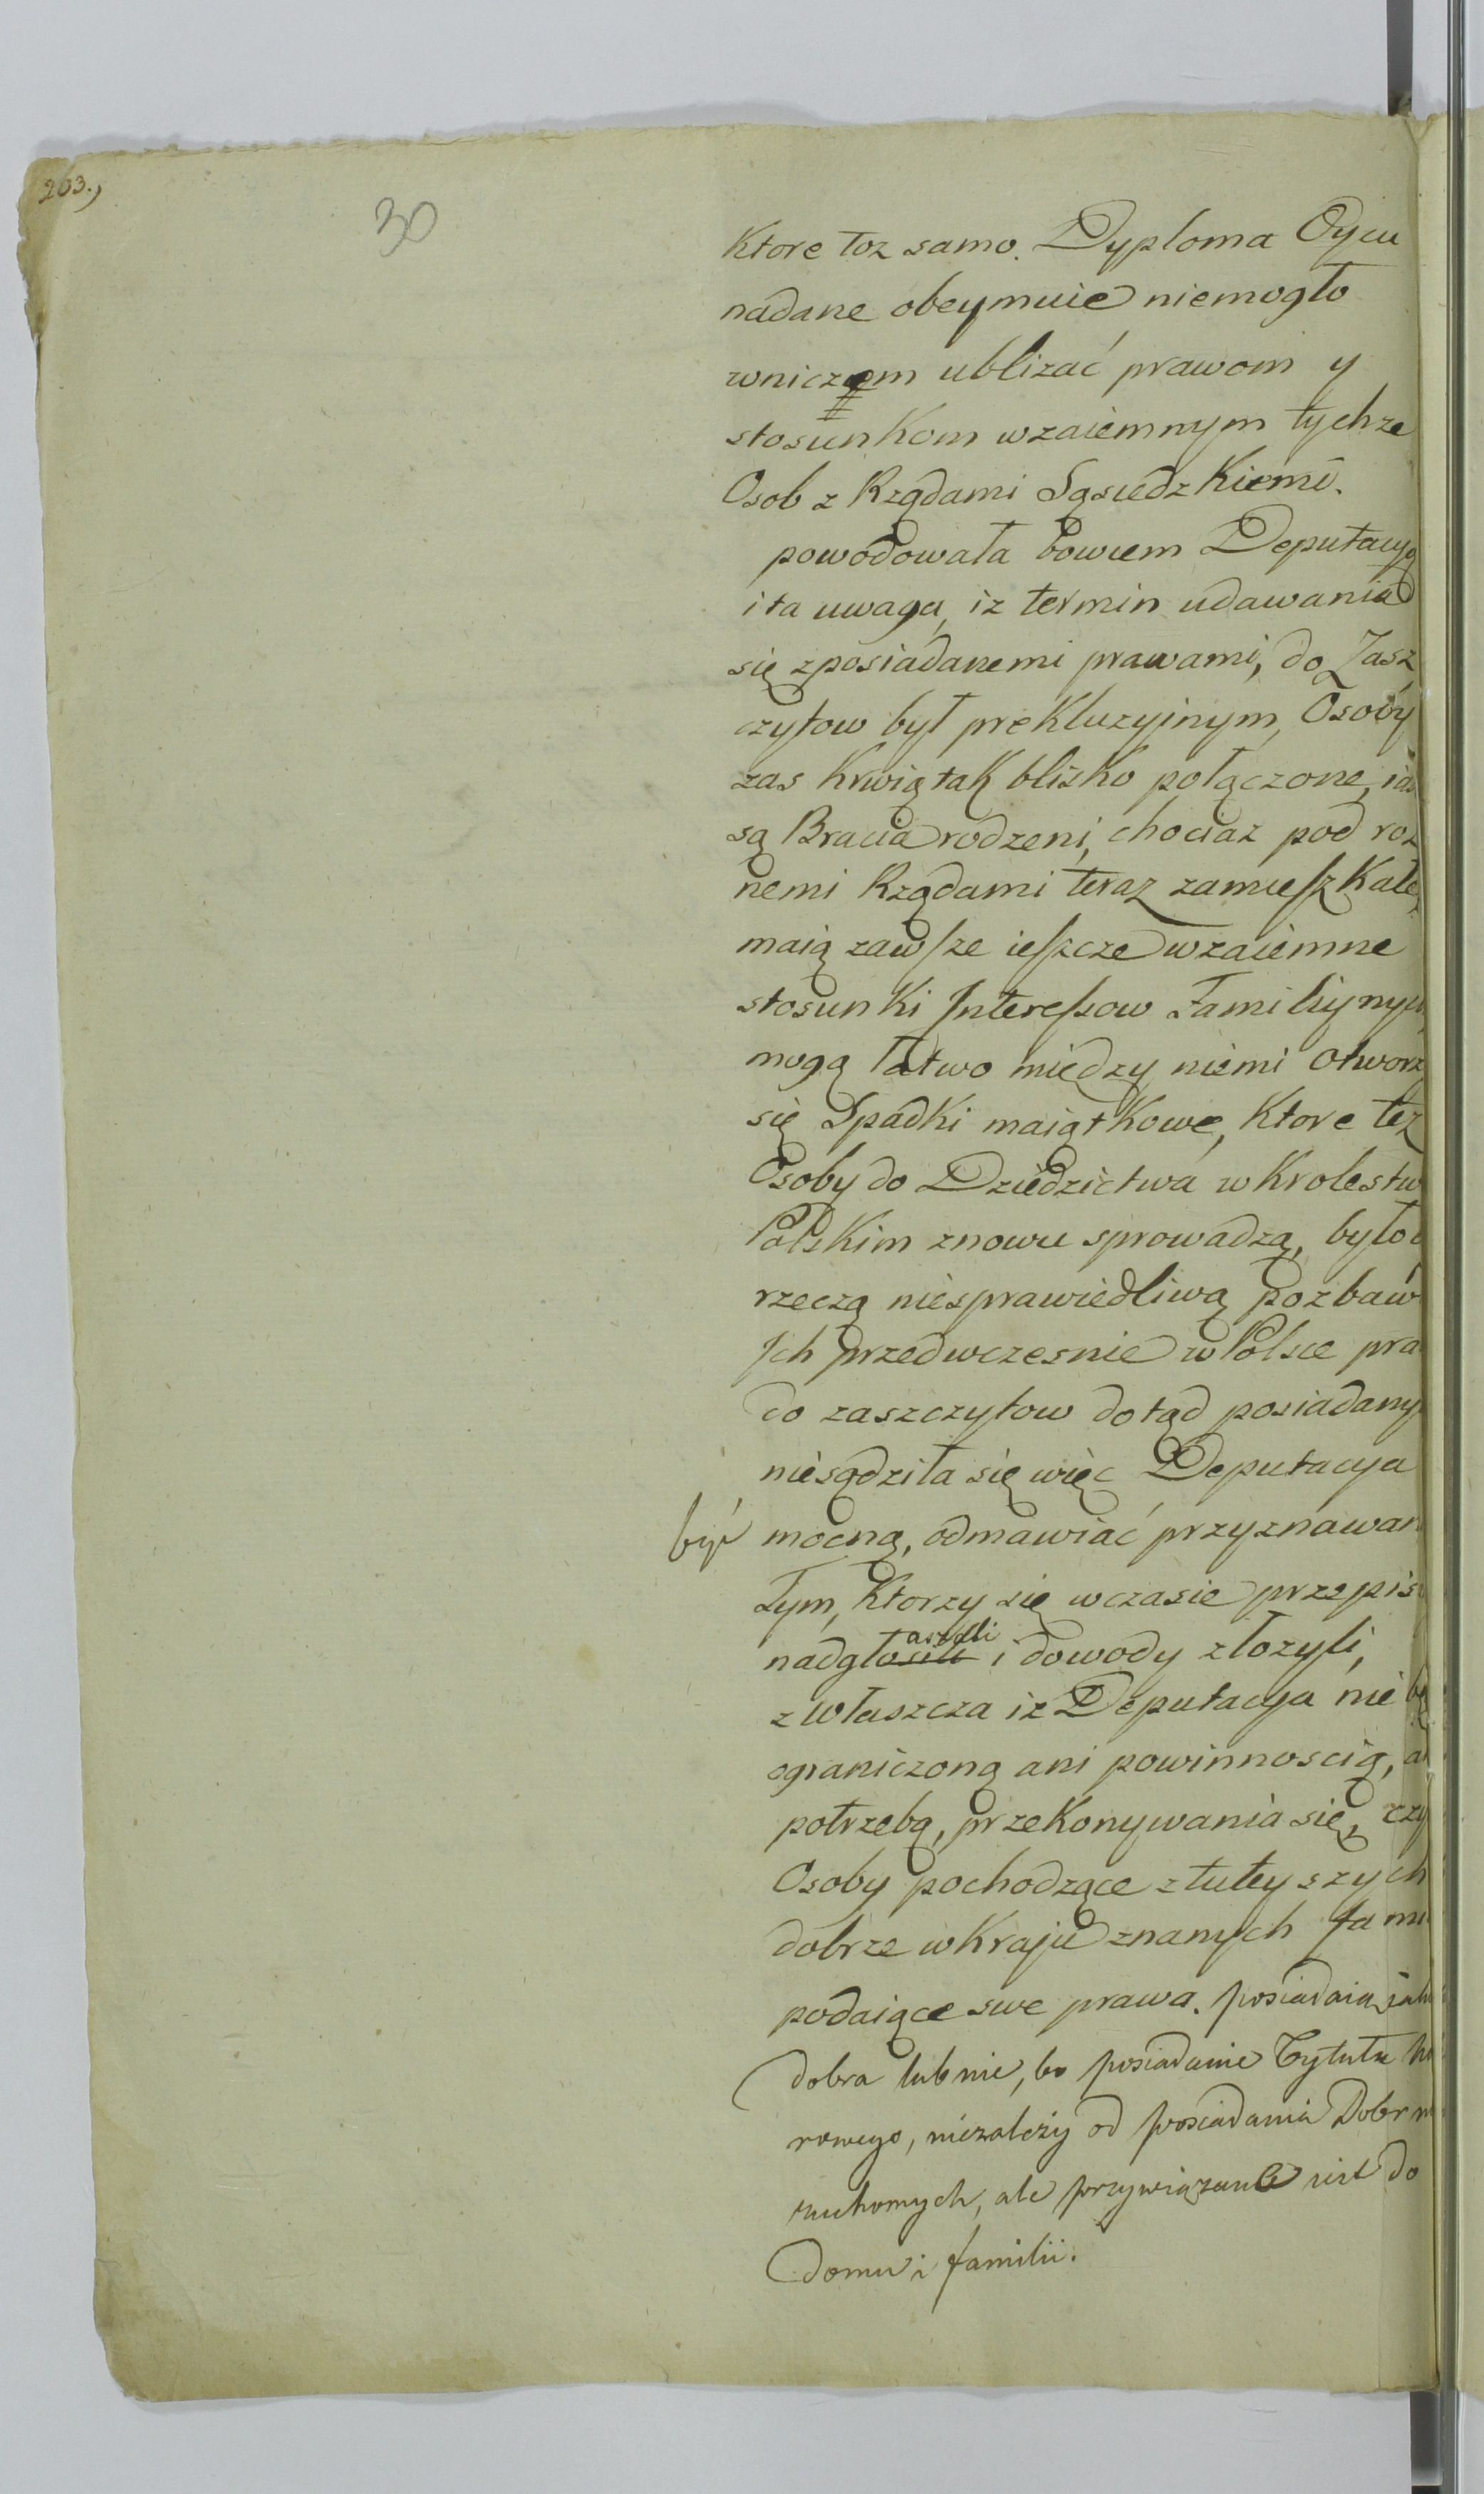 203.,
30
Ktore toz samo. Dyploma Oycu
nadane obeymuie niemogło
wniczem ublizać prawom y
stosunkom wzaiemnym tychze
Osob z Rządami Sąsiedzkiemi.
powodowała bowiem Deputacyą
i ta uwaga, iz termin udawania
się zposiadanemi prawami, do Zasz
czytow był prekluzyjnym, Osoby
zas krwią tak blizko połączone, iak
są Bracia rodzeni, chociaz pod roz
nemi Rządami teraz zamieszkałe,
maią zawsze ieszcze wzaiemne
stosunki Interessow Familiynych
mogą łatwo między niemi otworz
się Spadki maiątkowe, Ktore tez
Osoby do Dziedzictwa w Krolestw
Polskim znowu sprowadzą, było
rzeczą niesprawiedliwą pozbaw
Ich przedwczesnie w Polsce pra
do zaszczytow dotąd posiadany
niesądziła się więc Deputacya
być mocną, odmawiać przyznawan
Tym, Ktorzy się wczasie przepis
nadgłosili i dowody złozyli,
zwłaszcza iz Deputacya nie by
ograniczoną ani powinnoscią, a
potrzebą, przekonywania się, czy
Osoby pochodzące z tuteyszych
dobrze w Kraju znanych fami
podaiące swe prawa. posiadaią iak
dobra lub nie, bo posiadanie Tytułu ho
rowego, niezależy od posiadania Dobr n
ruchomych, ale przywiązane iest do
domu i familii.